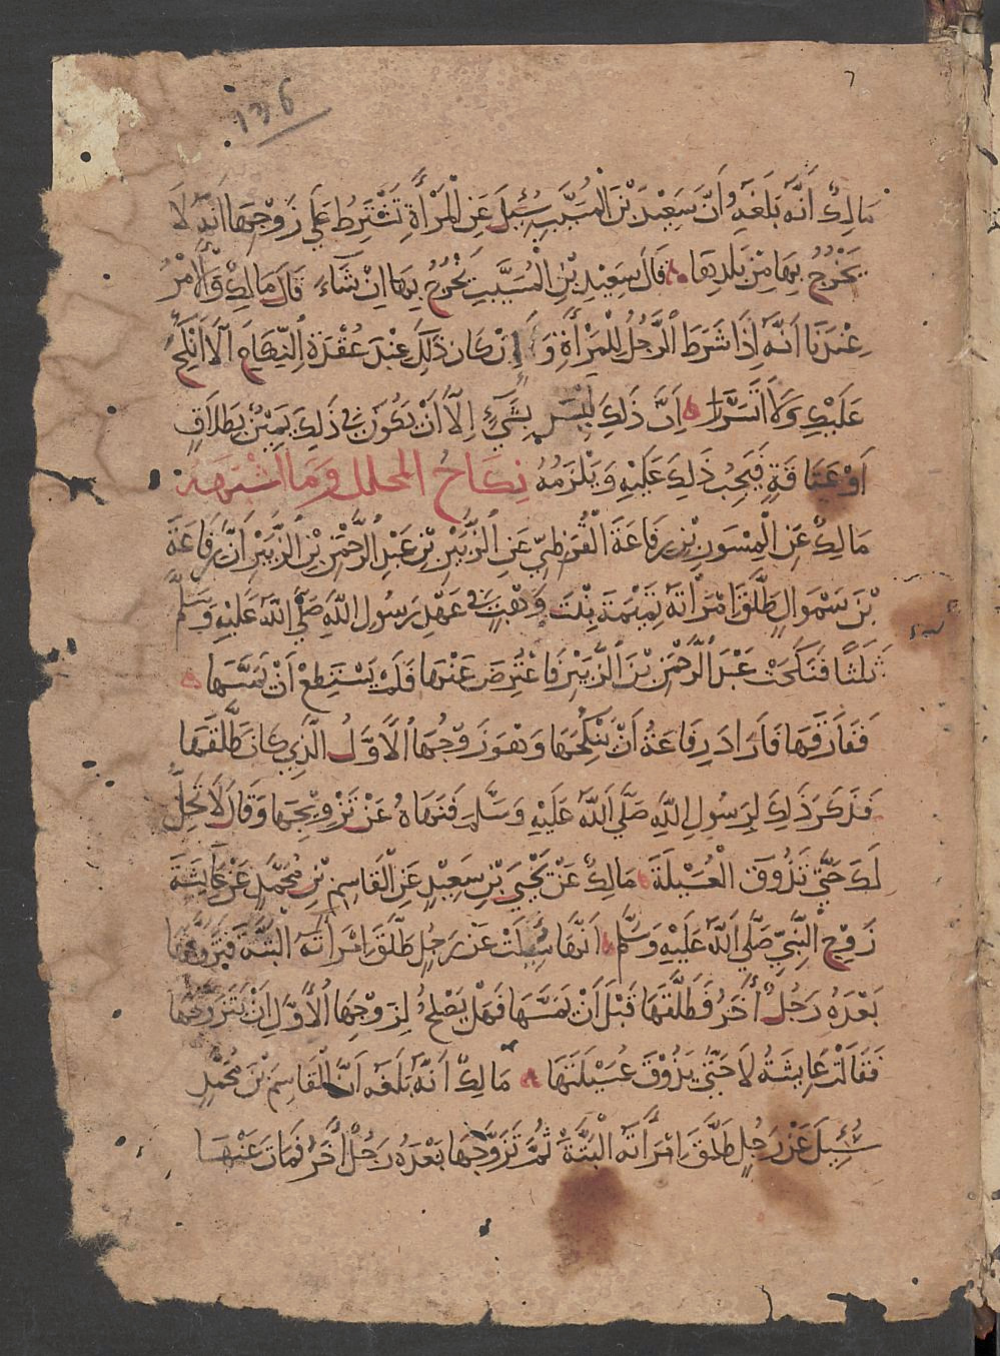 136
مَالِكٌ اَنَّهُ بَلَغَهُ اَنَّ سَعِيْدَ بْنَ الْمُسَيَّبِ سُئِيلَ عَنِ الْمَرْأَةِ تَشْتَرِطُ عَلَي زَوْجِهَا اَنَّهُ لَا
يَخْرُجُ بِهَا مِنْ بَلَدِهَا قَالَ سَعِيْدِ بْنِ الْمُسَيَّبِ يَخْرُجُ بِهَا اِنْ شَآءَ قَالَ مَالِكٌ وَالْاَمْرُ
عِنْدَنَا اَنَّهُ اِذَا شَرَطَ الْرَّجُلُ لِلْمَرْأَةِ وَاِنْ كَانَ ذَلِكَ عِنْدَ عُقْدَةِ النِّكَاحِ اَلَّا اَنْكِحُ
عَلَيْكِ وَلَا اَتَسَرَّرَ اِنَّ ذَلِكَ لَيْسَ بِشَيْءٍ اِلَّا اَنْ يَكُونَ فِي ذَلِكَ يَمِيْنٌ بِطَلَاقٍ
اَوْ عَتَاقَةٍ فَيَجِبُ ذَلِكَ عَلَيْهِ وَيَلْزَمُهُ نِكَاحُ المحلل وَمَا اَشْبَهَهُ
مَالِكٌ عَنِ الْمِسْوَرِ بْنِ رِفَاعَةَ الْقُرَظِيِّ عَنِ الْزُّبَيْرِ بْنِ عَبْدِ الْرَّحْمَنِ بْنِ الْزَّبِيْرِ اَنَّ رِفَاعَةَ
بْنَ سَمْوَالٍ طَلَّقَ امْرَأَتَهُ تَمِيْمَةَ بِنْتَ وَهْبٍ فِي عَهْدِ رَسُولِ اللَّهِ صَلَّي اللَّهُ عَلَيْهِ وَسَلَّم
ثَلثًا فَنَكَحَتْ عَبْدَ الْرَّحْمَنِ بْنَ الْزَّبِيْرِ فَاعْتُرِضَ عَنْهَا فَلَمْ يَسْتَطِعْ اَنْ يَمَسَّهَا
فَفَارَقَهَا فَاَرَادَ رِفَاعَةُ اَنْ يَنْكِحَهَا وَهْوَ زَوْجُهَا الْاَوَّلُ الَّذِي كَانَ طَلَّقَهَا
فَذَكَرَ ذَلِكَ لِرَسُولِ اللَّهِ صَلَّي اللَّهُ عَلَيْهِ وَسَلَّمَ فَنَهَاهُ عَنْ تَزْوِيْجِهَا وَقَالَ لَا تَحِلُّ
لَكَ حَتَّي تَذُوقَ الْعُسَيْلَةَ مَالِكٌ عَنْ يَحْيَي بْنِ سَعِيْدٍ عَنِ الْقَاسِمِ بْنِ مُحَمَّدٍ عَنْ عَايِشَةَ
زَوْجِ الْنَّبِيِّ صَلَّي اللَّهُ عَلَيْهِ وَسَلَّم اَنَّهَا سُئِيلَتْ عَنْ رَجُلٍ طَلَّقَ امْرَأَتَهُ الْبَتَّةَ فَتَزَوَّجَهَا
بَعْدَهُ رَجُلٌ أَخَرُ فَطَلَّقَهَا قَبْلَ اَنْ يَمَسَّهَا فَهَلْ يَصْلُحُ لِزَوْجِهَا الْاَوَّلِ اَنْ يَتَزَوَّجَهَا
فَقَالَتْ عَايِشَةُ لَا حَتَّي يَذُوْقَ عُسَيْلَتَهَا مَالِكٌ اَنَّهُ بَلَغَهُ اَنَّ الْقَاسِمَ بْنَ مُحَمَّدٍ
سُئِيلَ عَنْ رَجُلٍ طَلَّقَ امْرَأَتَهُ الْبَتَّةَ ثُمَّ تَزَوَّجَهَا بَعْدَهُ رَجُلٌ أَخَرُ فَمَاتَ عَنْهَا